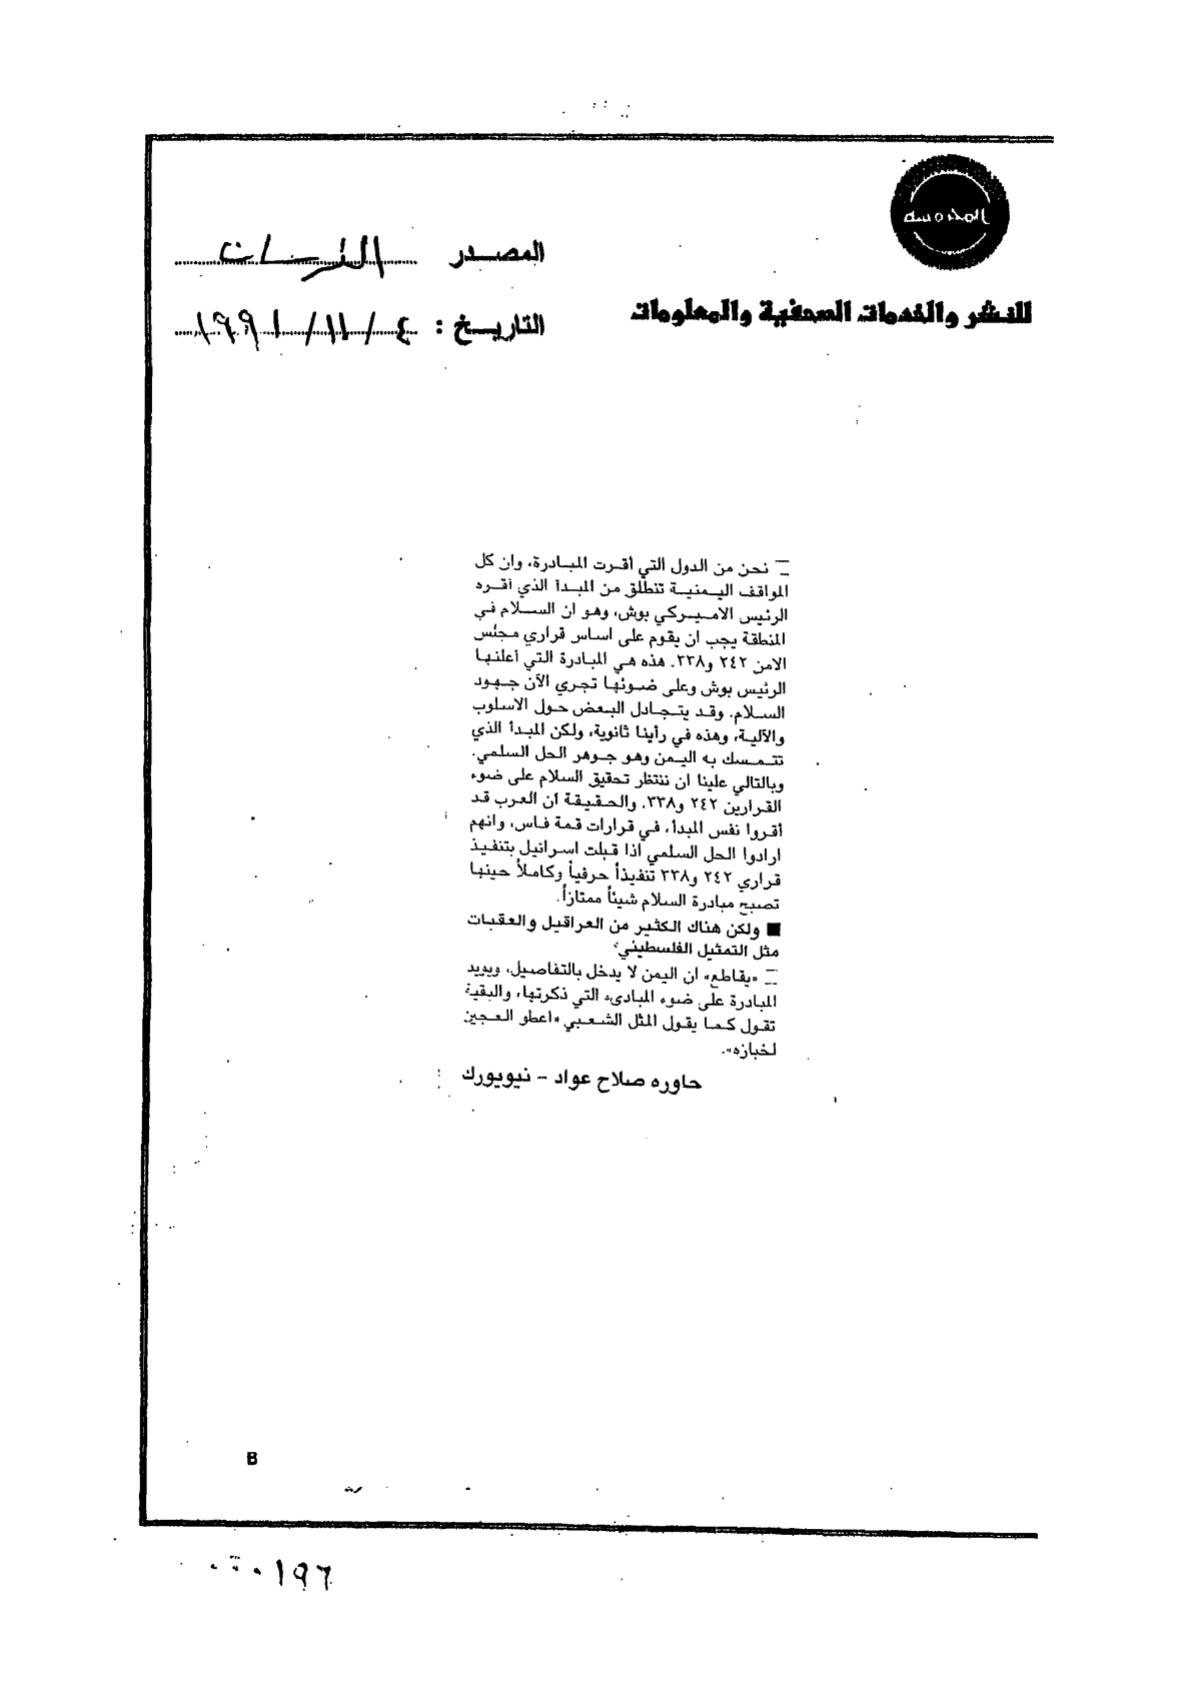 المحروسة
للنشر والخدمات الصحفية والمعلومات
المصدر الفرسان
التاريخ : ٤ / ١١ / ١٩٩١
نحن من الدول التي أقرت المبادرة، وان كل
المواقف اليمنية تنطلق من المبدأ الذي أقره
الرئيس الاميركي بوش، وهو ان السلام في
المنطقة يجب ان يقوم على اساس قراري مجلس
الامن ٢٤٢ و٣٣٨. هذه هي المبادرة التي أعلنها
الرئيس بوش وعلى ضوئها تجري الآن جهود
السلام. وقد يتجادل البعض حول الاسلوب
والآلية، وهذه في رأينا ثانوية، ولكن المبدأ الذي
تتمسك به اليمن وهو جوهر الحل السلمي.
وبالتالي علينا ان ننتظر تحقيق السلام على ضوء
القرارين ٢٤٢ و٣٣٨. والحقيقة ان العرب قد
أقروا نفس المبدأ، في قرارات قمة فاس، وانهم
ارادوا الحل السلمي اذا قبلت اسرائيل بتنفيذ
قراري ٢٤٢ و٣٣٨ تنفيذاً حرفياً وكاملاً حينها
تصبح مبادرة السلام شيئاً ممتازاً.
■ ولكن هناك الكثير من العراقيل والعقبات
مثل التمثيل الفلسطيني؟
«يقاطع» ان اليمن لا يدخل بالتفاصيل، ويويد
المبادرة على ضوء المبادىء التي ذكرتها، والبقية
تقول كما يقول المثل الشعبي «اعطو العجين
لخبازه».
حاوره صلاح عواد – نيويورك
B
٠١٩٦